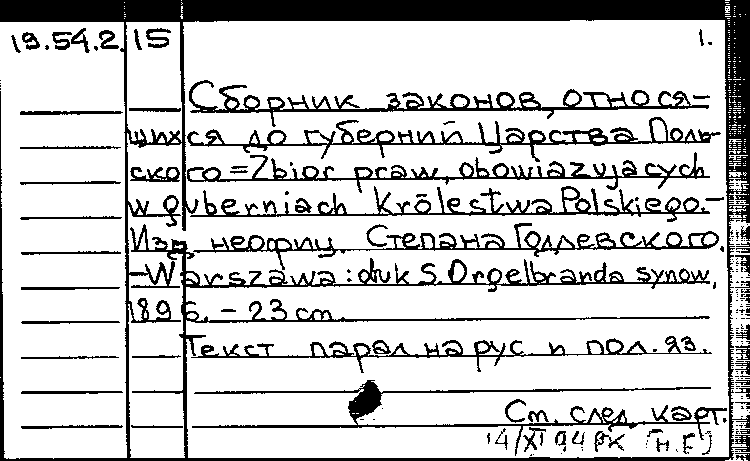 19.54.2.15 1.
Сборник законов, относя-
щихся до губерний Царства Поль-
ского = Zbior praw, obowiazujacych
w guberniach Królestwa Polskiego.-
Изд. неофиц. Степана Годлевского.
-Warszawa: druk S. Orgelbranda synow,
1896. - 23 cm.
Текст парал. на рус и пол. яз.
См. след. карт.
14/XI 94 РК (Н.Б)